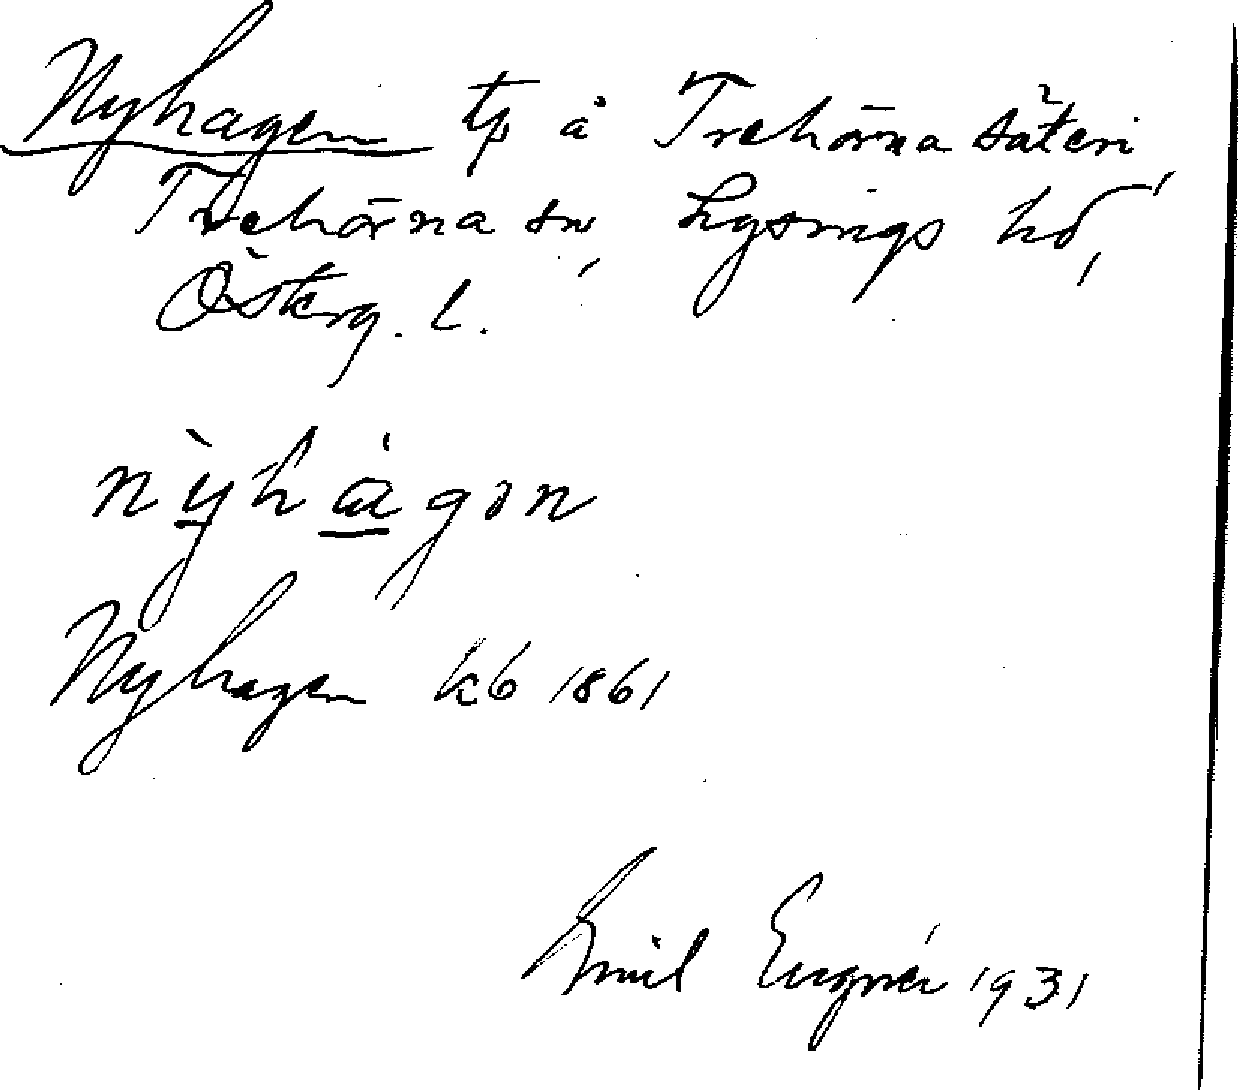 Nyhagen tp å Trehörna säteri
Trehörna sn, Lysings hd,
Österg. l.
nỳhágon
Nyhagen kb 1861
Emil Engnér 1931